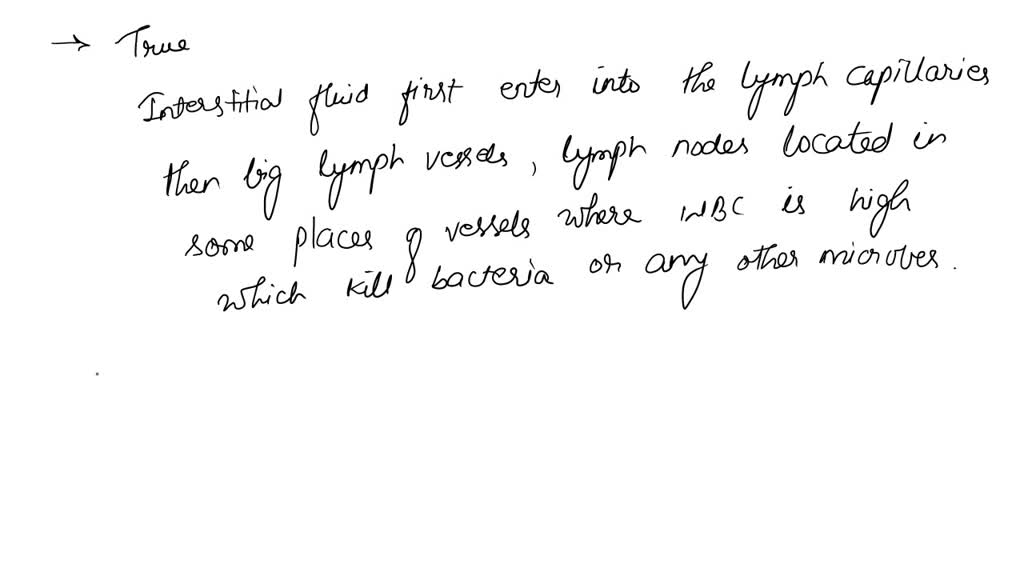 → True
Interstitial fluid first enter into the lymph capillaries
then big lymph vessels, lymph nodes located in
some places of vessels where WBC is high
which kill bacteria or any other microbes.